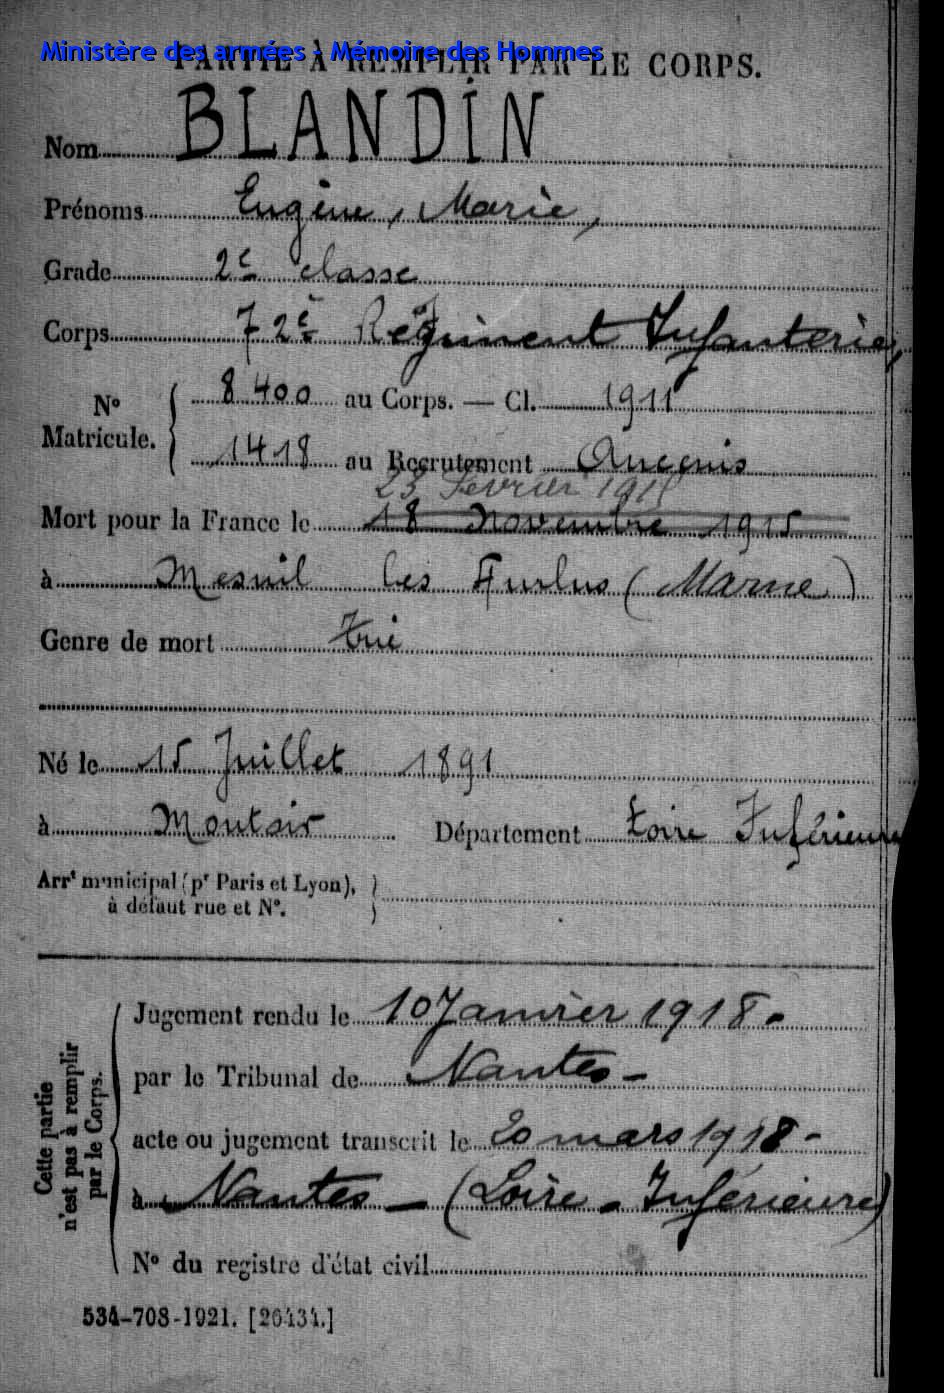 Ministère des armées - Mémoire des Hommes
PARTIE À REMPLIR PAR LE CORPS.
Nom BLANDIN
Prénoms Eugène, Marie,
Grade 2e classe
Corps 72e Régiment Infanterie,
No Matricule. 8400 au Corps. — Cl. 1911
1418 au Recrutement Ancenis
23 Février 1915
Mort pour la France le 18 Novembre 1915
à Mesnil les Hurlus (Marne)
Genre de mort Tué
Né le 15 Juillet 1891
à Montoir Département Loire Inférieure
Arrt municipal (pr Paris et Lyon),
à défaut rue et No.
Cette partie n'est pas à remplir par le Corps.
Jugement rendu le 10 Janvier 1918 -
par le Tribunal de Nantes -
acte ou jugement transcrit le 20 mars 1918 -
à Nantes - (Loire - Inférieure)
No du registre d'état civil
534-708-1921. [26434.]